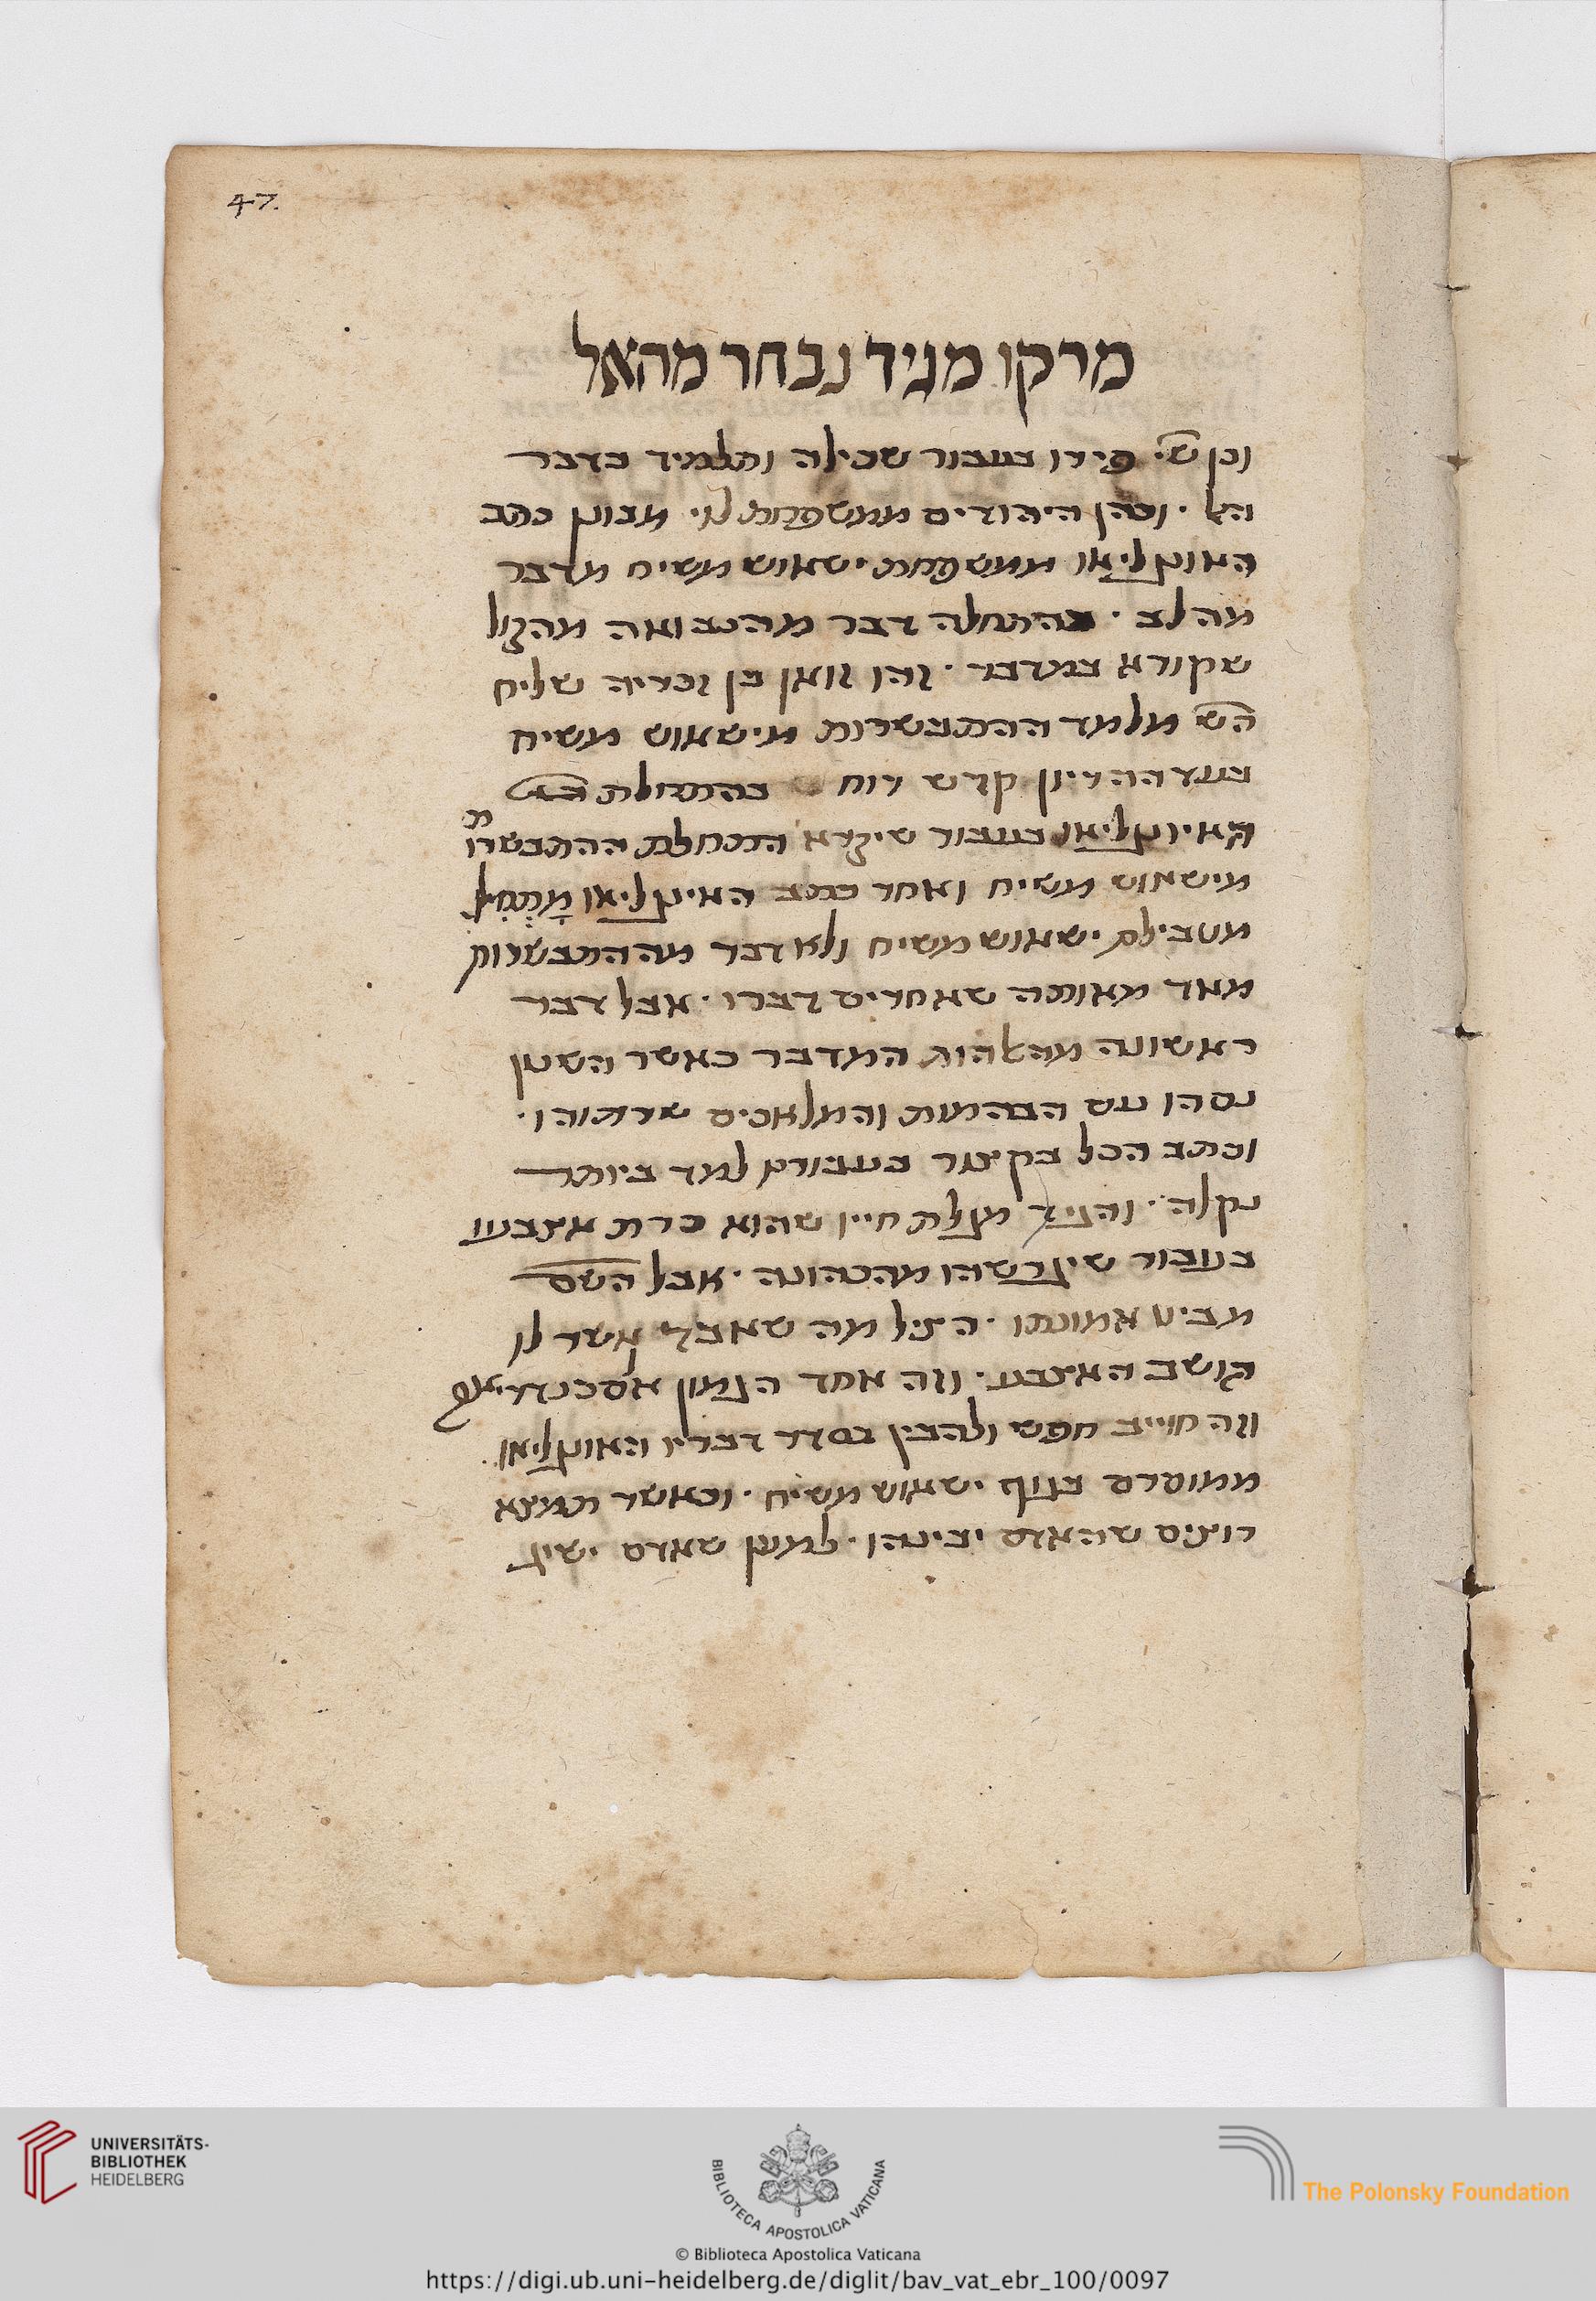 47.
מרקו מגיד נבחר מהאל
וכן ש׳ פירו בעבור שכילה ותלמיד בדבר
האל · וכהן היהודים ממשפחת לוי מבוון כתב
האוונגליאו ממשפחת ישאוש משיח מדבר
מה לב · בהתחלה דבר מהנבואה מהקול
שקורא במדבר · זהו זואן בן זכריה שליח
הש מלמד ההתבשרות מישאוש משיח
בעד ההריון קדש רוח בהתחלת
האיונגליאו בעבור שיקרא התחלת ההתבשרות
מישאוש משיח ואחר כתב האיונגליאו מתחיל
מטבילת ישאוש משיח ולא דבר מההתבשרות
מאד מאותה שאחרים דברו · אבל דבר
ראשונה מהלהות המדבר כאשר השטן
נסהו עם הבהמות והמלאכים שרתוהו ·
וכתב הכל בקיצור בעבורם למד ביותר
נקלה · והגיד מגלת חייו שהוא כרת אצבעו
בעבור שיגרשהו מהכהונה · אבל השם
מביט אמונתו · הציל מה שאבד אשר לו
הושב האצבע · וזה אחד הגמון אלסכנדריאה
וזה חוייב חפש ולהבין בסדר דבריו האוונגליאו
ממוסרם בגוף ישאוש משיח · וכאשר תמצא
רוצים שהאדם יבינהו · למען שאדם ישיג
UNIVERSITÄTS-
BIBLIOTHEK
HEIDELBERG
BIBLIOTECA APOSTOLICA VATICANA
The Polonsky Foundation
© Biblioteca Apostolica Vaticana
https://digi.ub.uni-heidelberg.de/diglit/bav_vat_ebr_100/0097